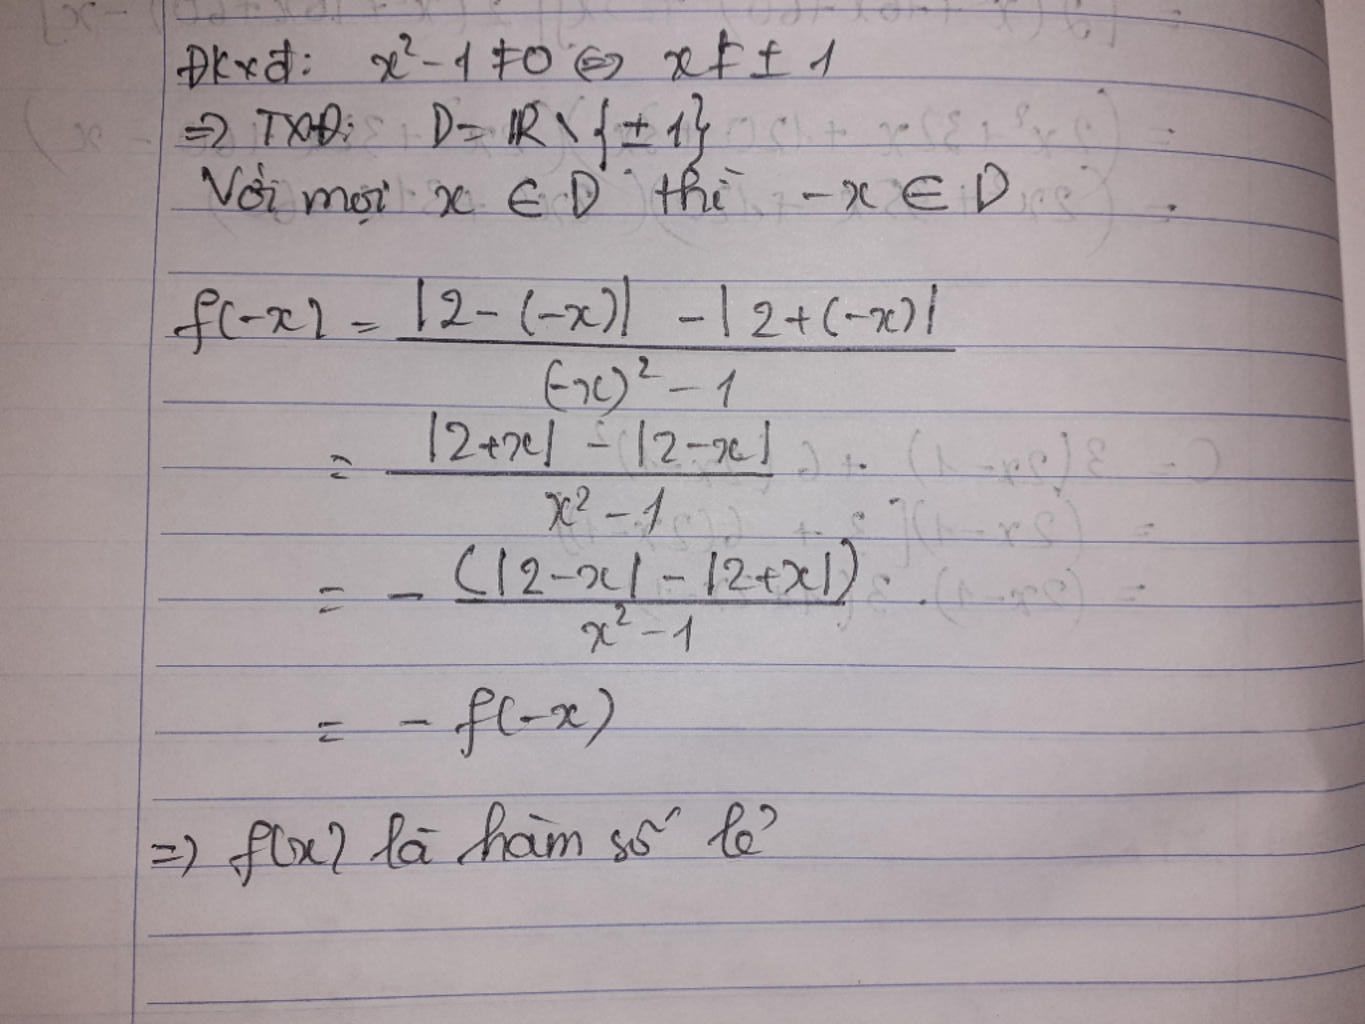 ĐKxđ: x² - 1 ≠ 0 ⇔ x ≠ ± 1
=> TXĐ: D = ℝ \ {± 1}
Với mọi x ∈ D thì -x ∈ D
f(-x) = |2 - (-x)| - |2 + (-x)|
(-x)² - 1
= |2+x| - |2-x|
x² - 1
= - (|2-x| - |2+x|)
x² - 1
= - f(-x)
=> f(x) là hàm số lẻ